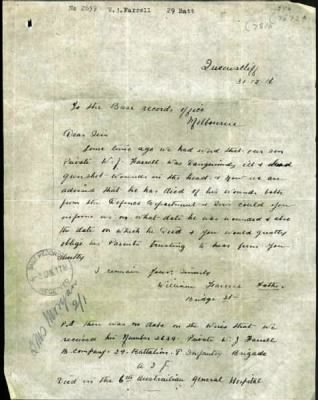 No 2639 W.J. Farrell 29 Batt
Queenscliff
31.12.16
To the Base records office
Melbourne
Dear Sir
Some time ago we had word that our son
Private W. J. Farrell was Dangerously ill &
gunshot wounds in the head & Now we are
advised that he has died of his wounds both
from the Defence Department & Sir could you
inform us on what date he was wounded & also
the date on which he died & you would greatly
oblige his Parents trusting to hear from you
shortly
I remain yours sincerely
William Farrell Father
Bridge St
P.S. there was no date on the Wires that we
received his Number 2639. Private W J Farrell
B. company. 29. Battalion. 8 Infantry Brigade
A I F
Died in the 6th Australian General Hospital